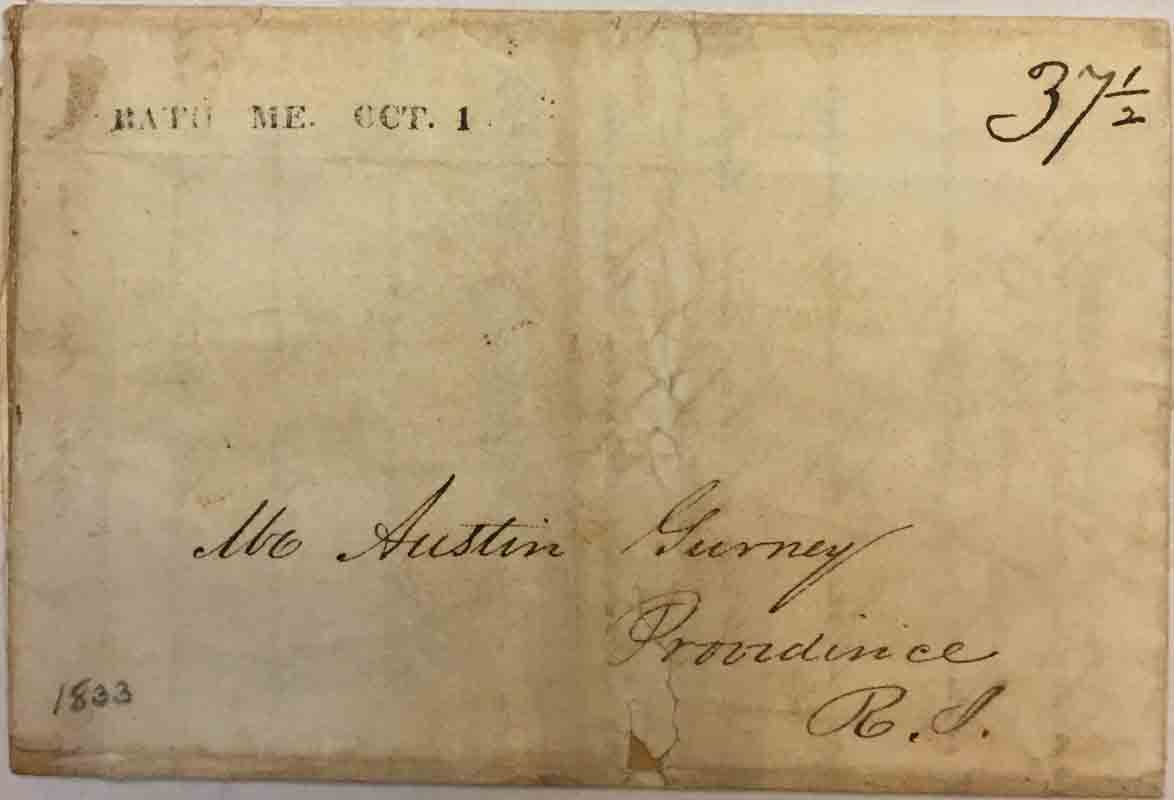 BATH ME. OCT. 1
37 1/2
Mr Austin Gurney
Providince
R. I.
1833